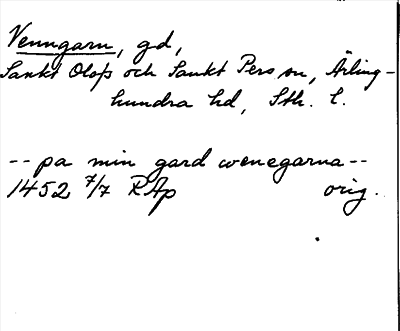 Venngarn, gd,
Sankt Olofs och Sankt Pers sn, Ärling-
hundra hd, Sth. l.
-- pa min gard wenegarna --
1452 7/7 RAp orig.